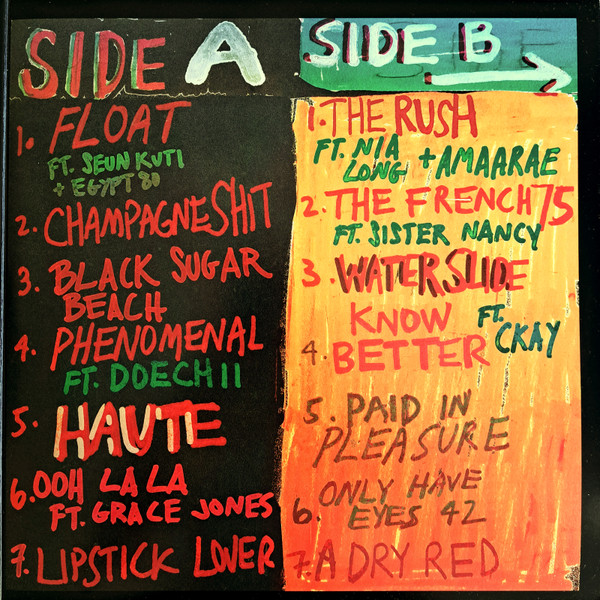 SIDE A
1. FLOAT
FT. SEUN KUTI
+ EGYPT 80
2. CHAMPAGNE SHIT
3. BLACK SUGAR
BEACH
4. PHENOMENAL
FT. DOECHII
5. HAUTE
6. OOH LA LA
FT. GRACE JONES
7. LIPSTICK LOVER
SIDE B
1. THE RUSH
FT. NIA
LONG + AMAARAE
2. THE FRENCH 75
FT. SISTER NANCY
3 WATERSLIDE
KNOW FT.
4. BETTER CKAY
5. PAID IN
PLEASURE
ONLY HAVE
6. EYES 42
7. A DRY RED